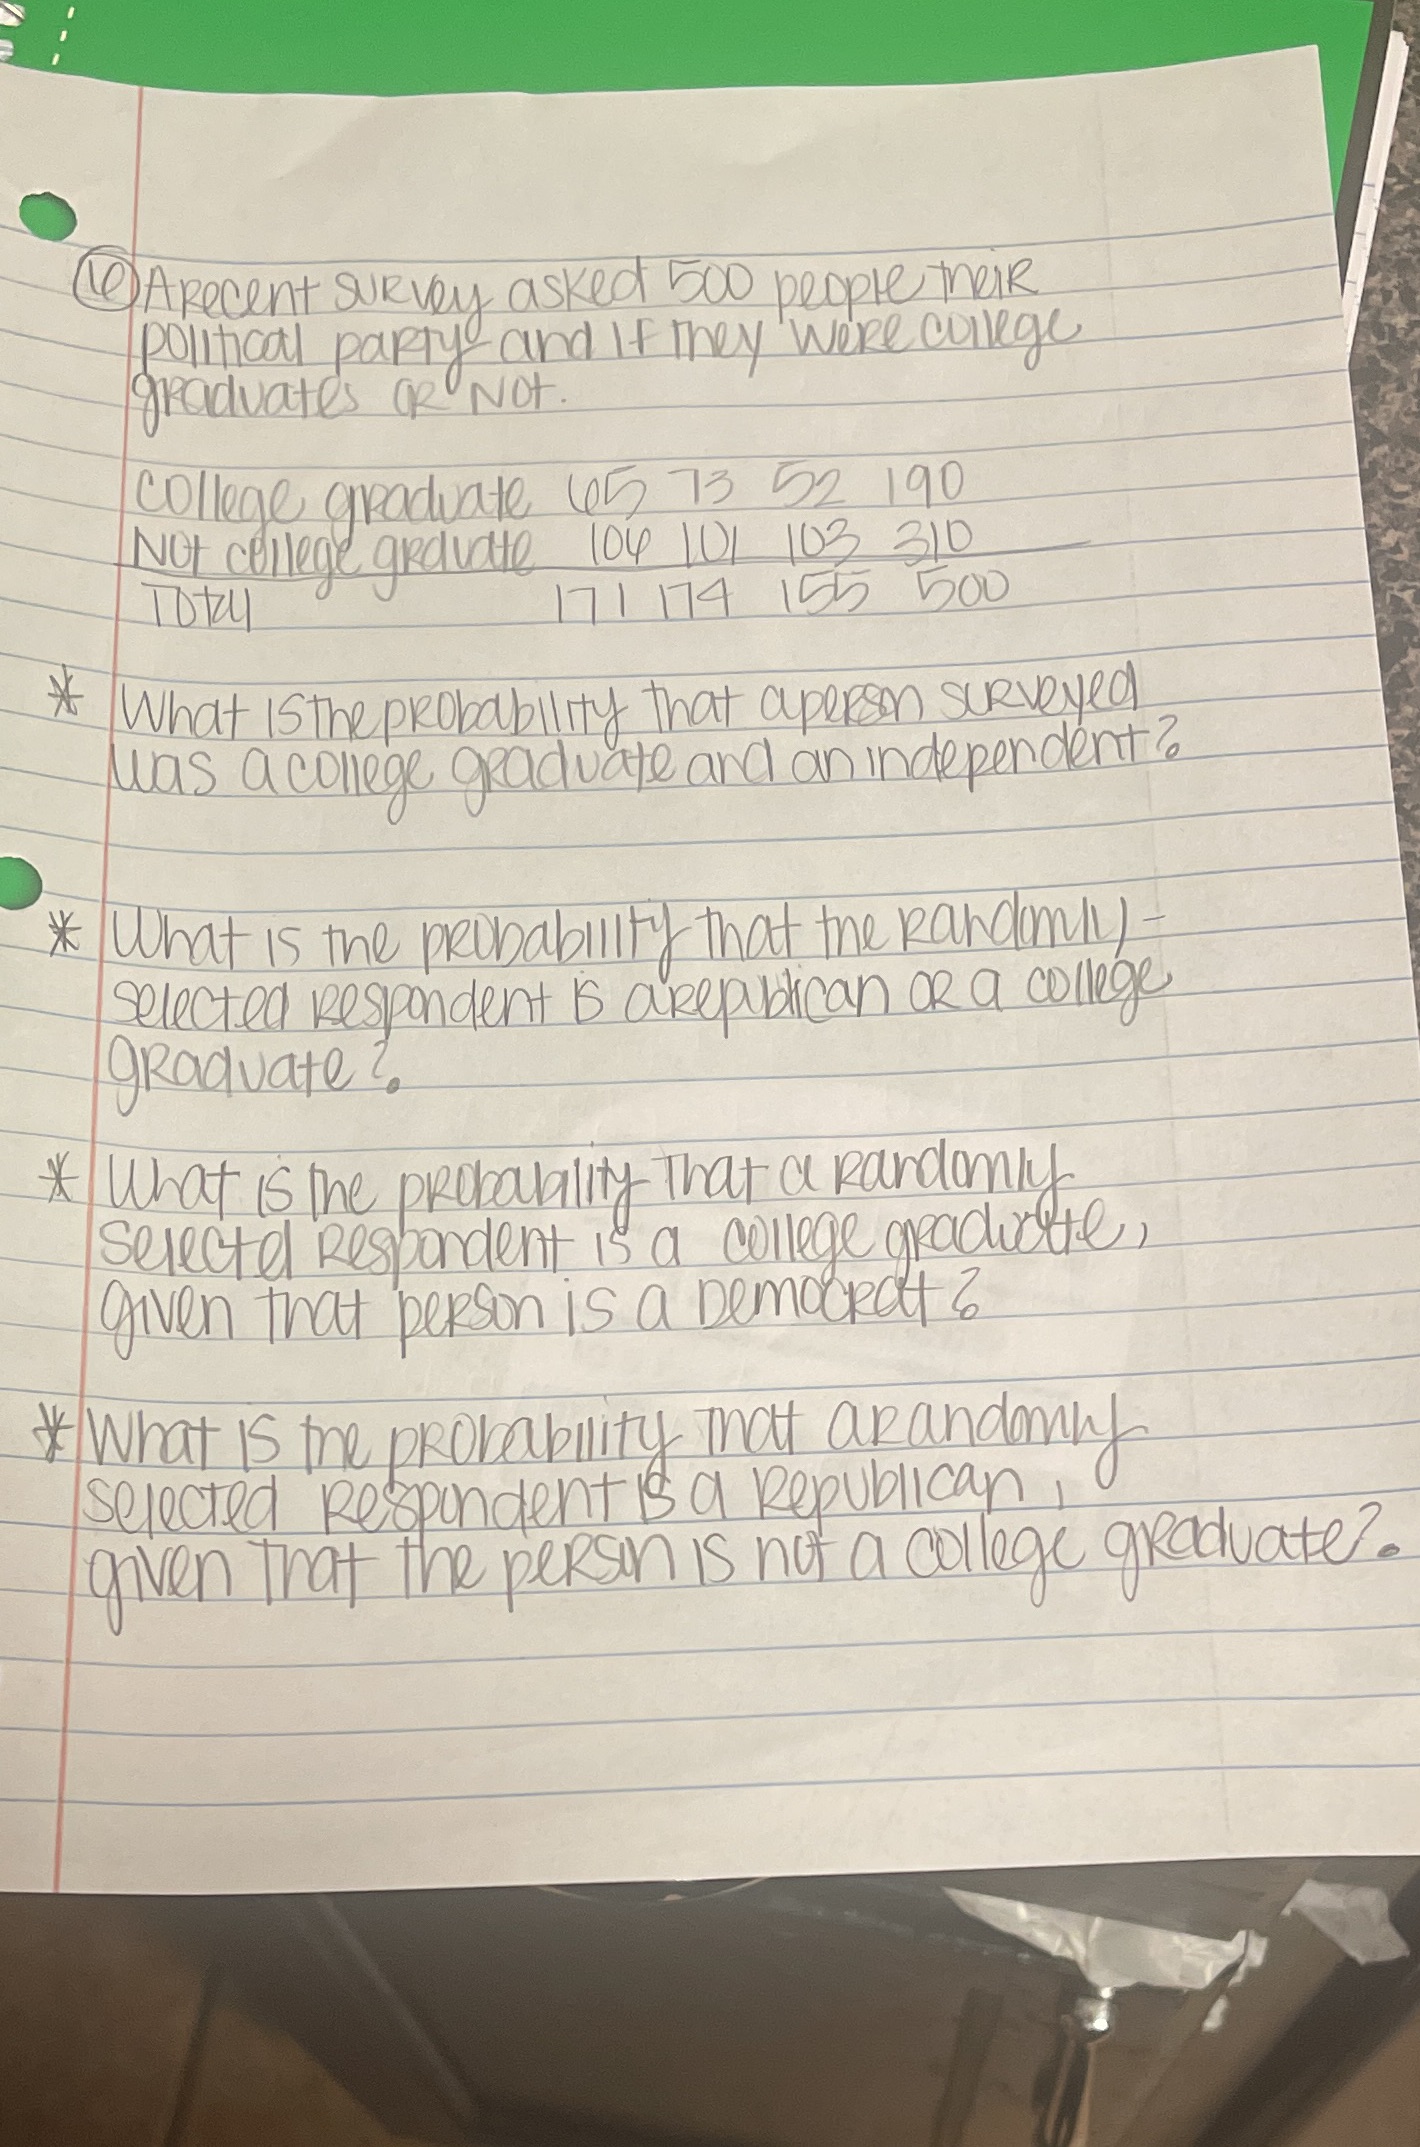 6 A recent survey asked 500 people their
political party and if they were college
graduates or not.
college graduate 65 73 52 190
Not college graduate 106 101 103 310
Total 171 174 155 500
* What is the probability that a person surveyed
was a college graduate and an independent?
* What is the probability that the randomly-
selected respondent is a republican or a college
graduate?
* What is the probability that a randomly
selected respondent is a college graduate,
given that person is a Democrat?
* What is the probability that a randomly
selected respondent is a Republican,
given that the person is not a college graduate?